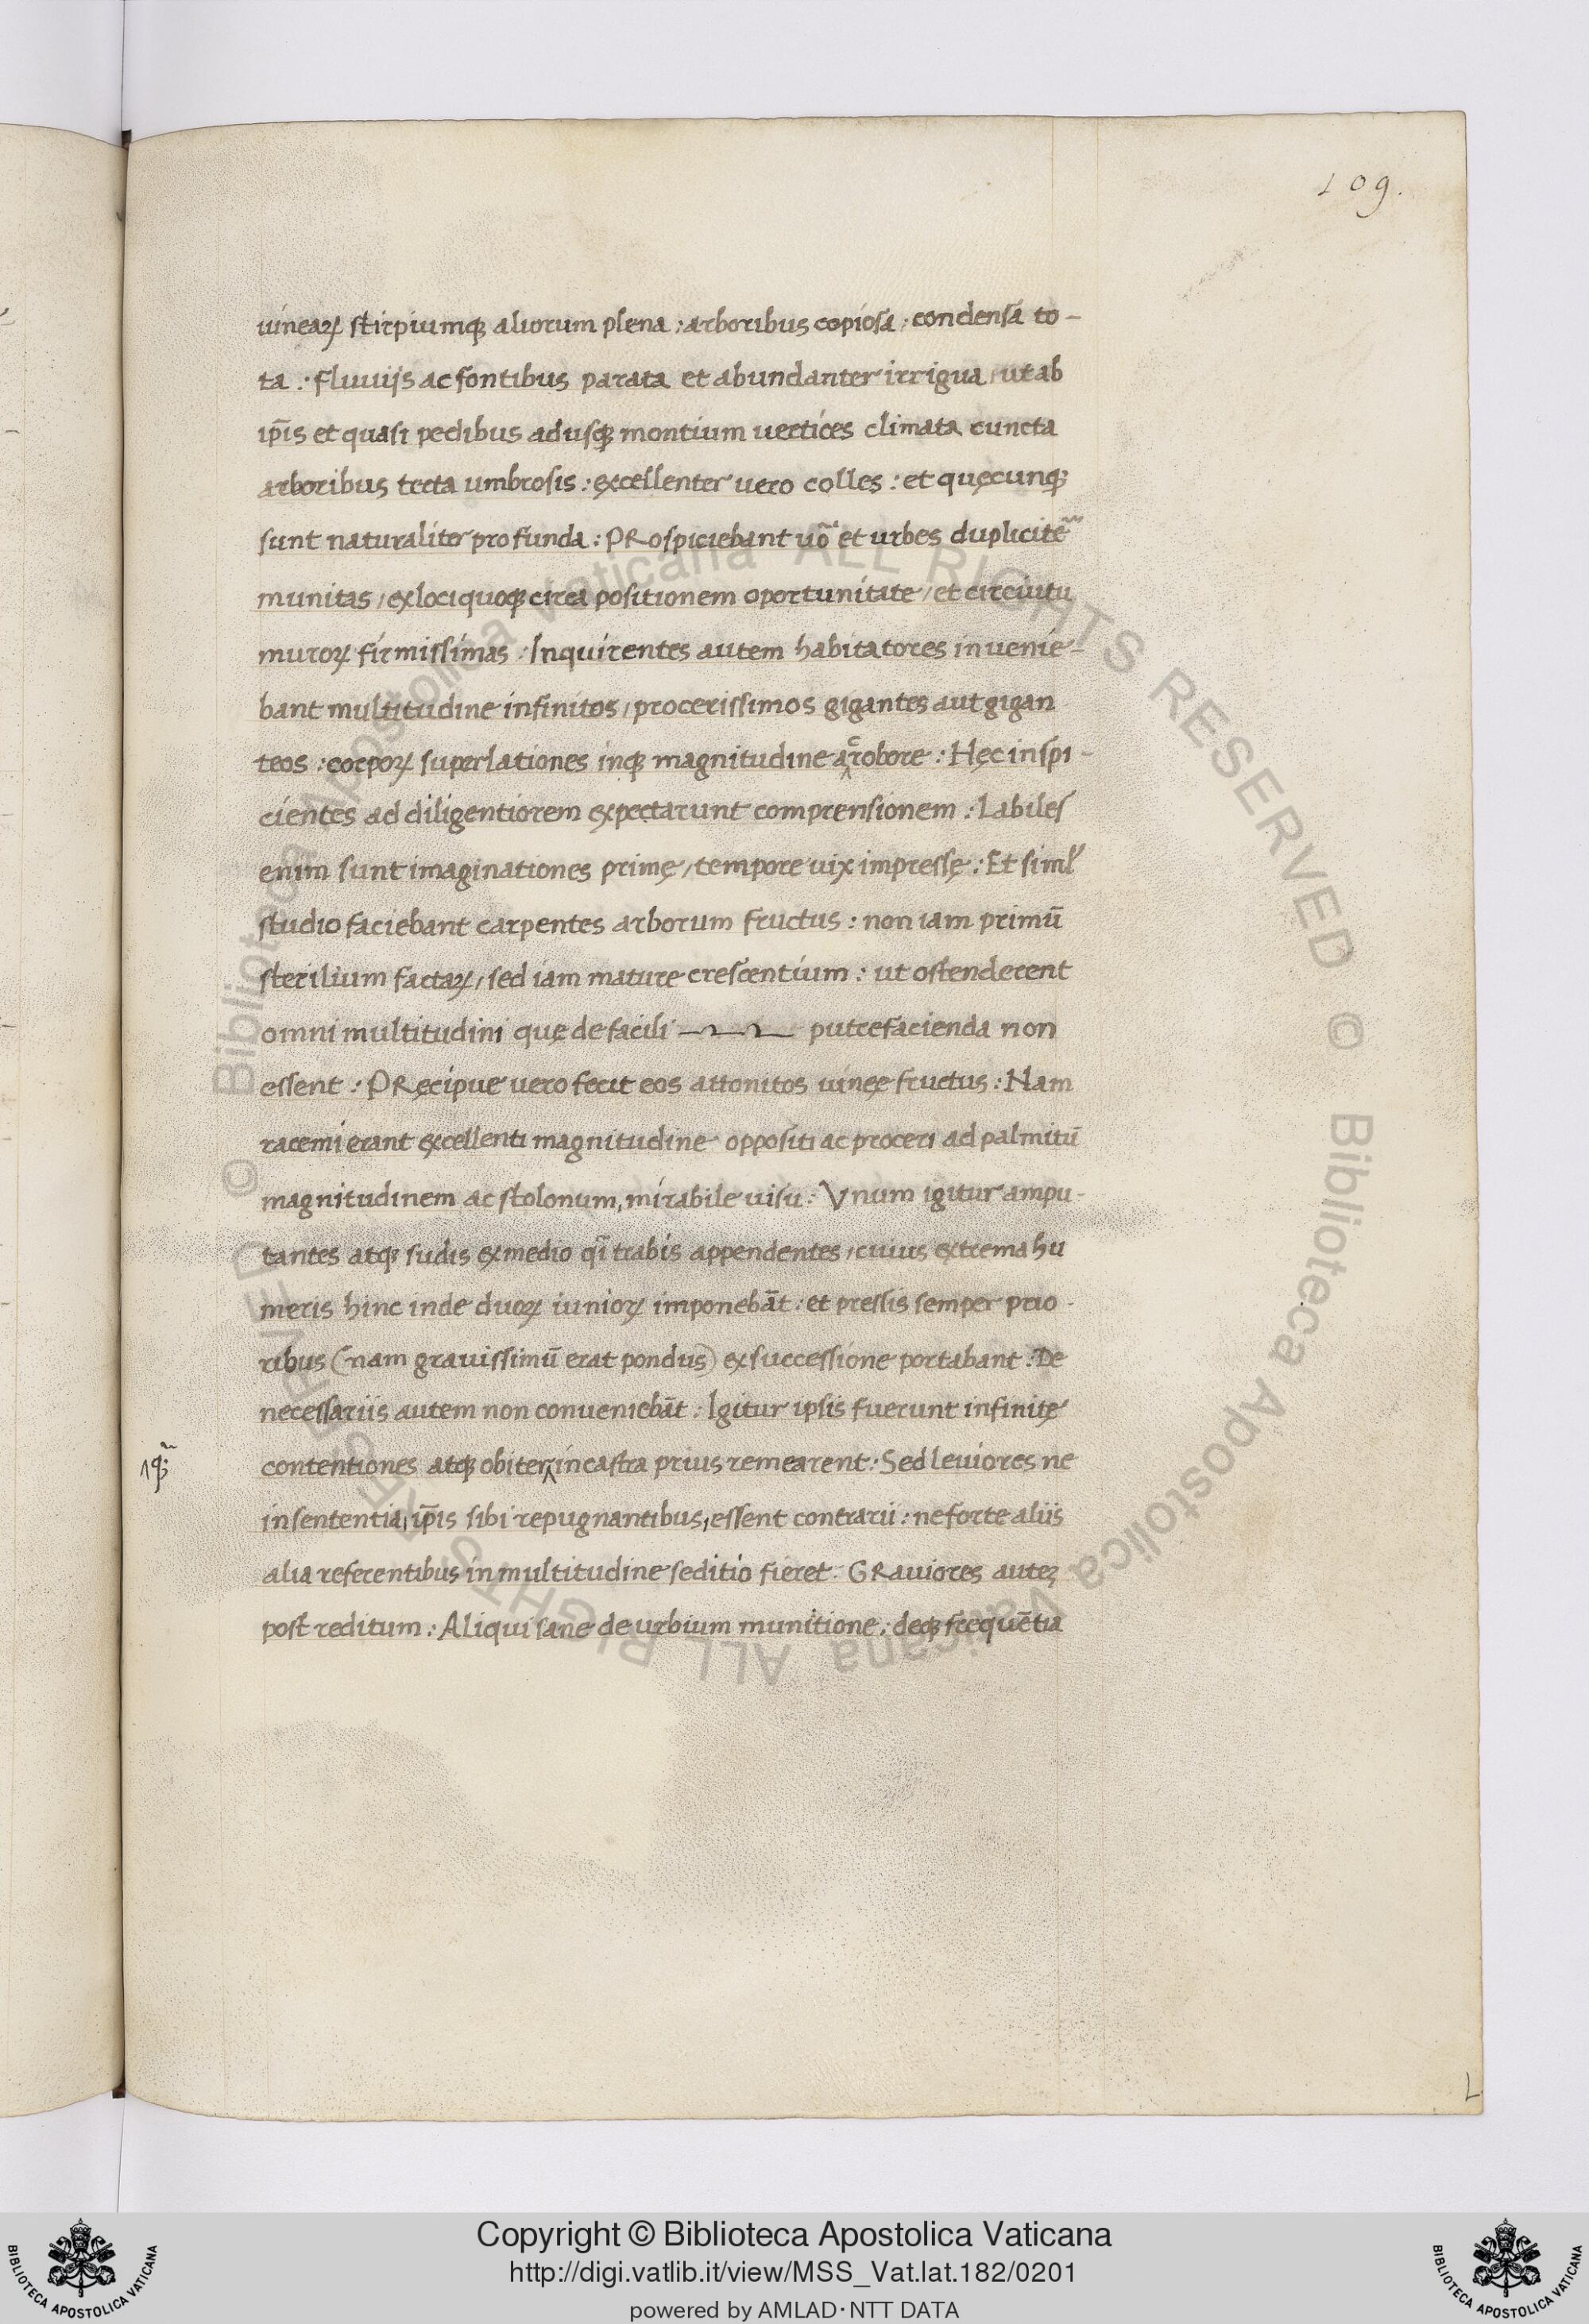 109.
uinearꝝ stirpiumqꝫ aliorum plena : arboribus copiosa : condensa to-
ta : Fluuijs ac fontibus parata et abundanter irrigua / ut ab
ip̄is et quasi pedibus adusqꝫ montium uertices climata cuncta
arboribus tecta umbrosis : excellenter uero colles : et quęcunqꝫ
sunt naturaliter profunda : PRospiciebant uo᷈ et urbes duplicite᷈
munitas / ex loci quoqꝫ circa positionem oportunitate / et circuitu
murorꝝ firmissimas : Inquirentes autem habitatores inuenie-
bant multitudine infinitos / procerissimos gigantes aut gigan
teos : corporꝝ superlationes inqꝫ magnitudine ac robore : Hęc inspi-
cientes ad diligentiorem expectarunt comprensionem : Labiles
enim sunt imaginationes primę / tempore uix impressę : Et siml'
studio faciebant carpentes arborum fructus : non iam primū
sterilium factarꝝ / sed iam mature crescentium : ut ostenderent
omni multitudini quę de facili putrefacienda non
essent : PRęcipue uero fecit eos attonitos uineę fructus : Nam
racemi erant excellenti magnitudine oppositi ac proceri ad palmitū
magnitudinem ac stolonum, mirabile uisu : Vnum igitur ampu-
tantes atqꝫ sudis ex medio qi᷈ trabis appendentes / cuius extrema hu
meris hinc inde duorꝝ iuniorꝝ imponebāt : et pressis semper prio-
ribus (nam grauissimū erat pondus) ex successione portabant : De
necessariis autem non conueniebāt : Igitur ipsis fuerunt infinitę
contentiones atqꝫ obiter in castra prius remearent : Sed leuiores ne
in sententia, ip̄is sibi repugnantibus, essent contrarii : ne forte aliis
alia referentibus in multitudine seditio fieret. GRauiores auteꝫ
post reditum : Aliqui sane de urbium munitione : deqꝫ frequētia
© Biblioteca Apostolica Vaticana ALL RIGHTS RESERVED © Biblioteca Apostolica Vaticana ALL RIGHTS RESERVED
Copyright © Biblioteca Apostolica Vaticana
http://digi.vatlib.it/view/MSS_Vat.lat.182/0201
powered by AMLAD·NTT DATA
BIBLIOTECA APOSTOLICA VATICANA
BIBLIOTECA APOSTOLICA VATICANA